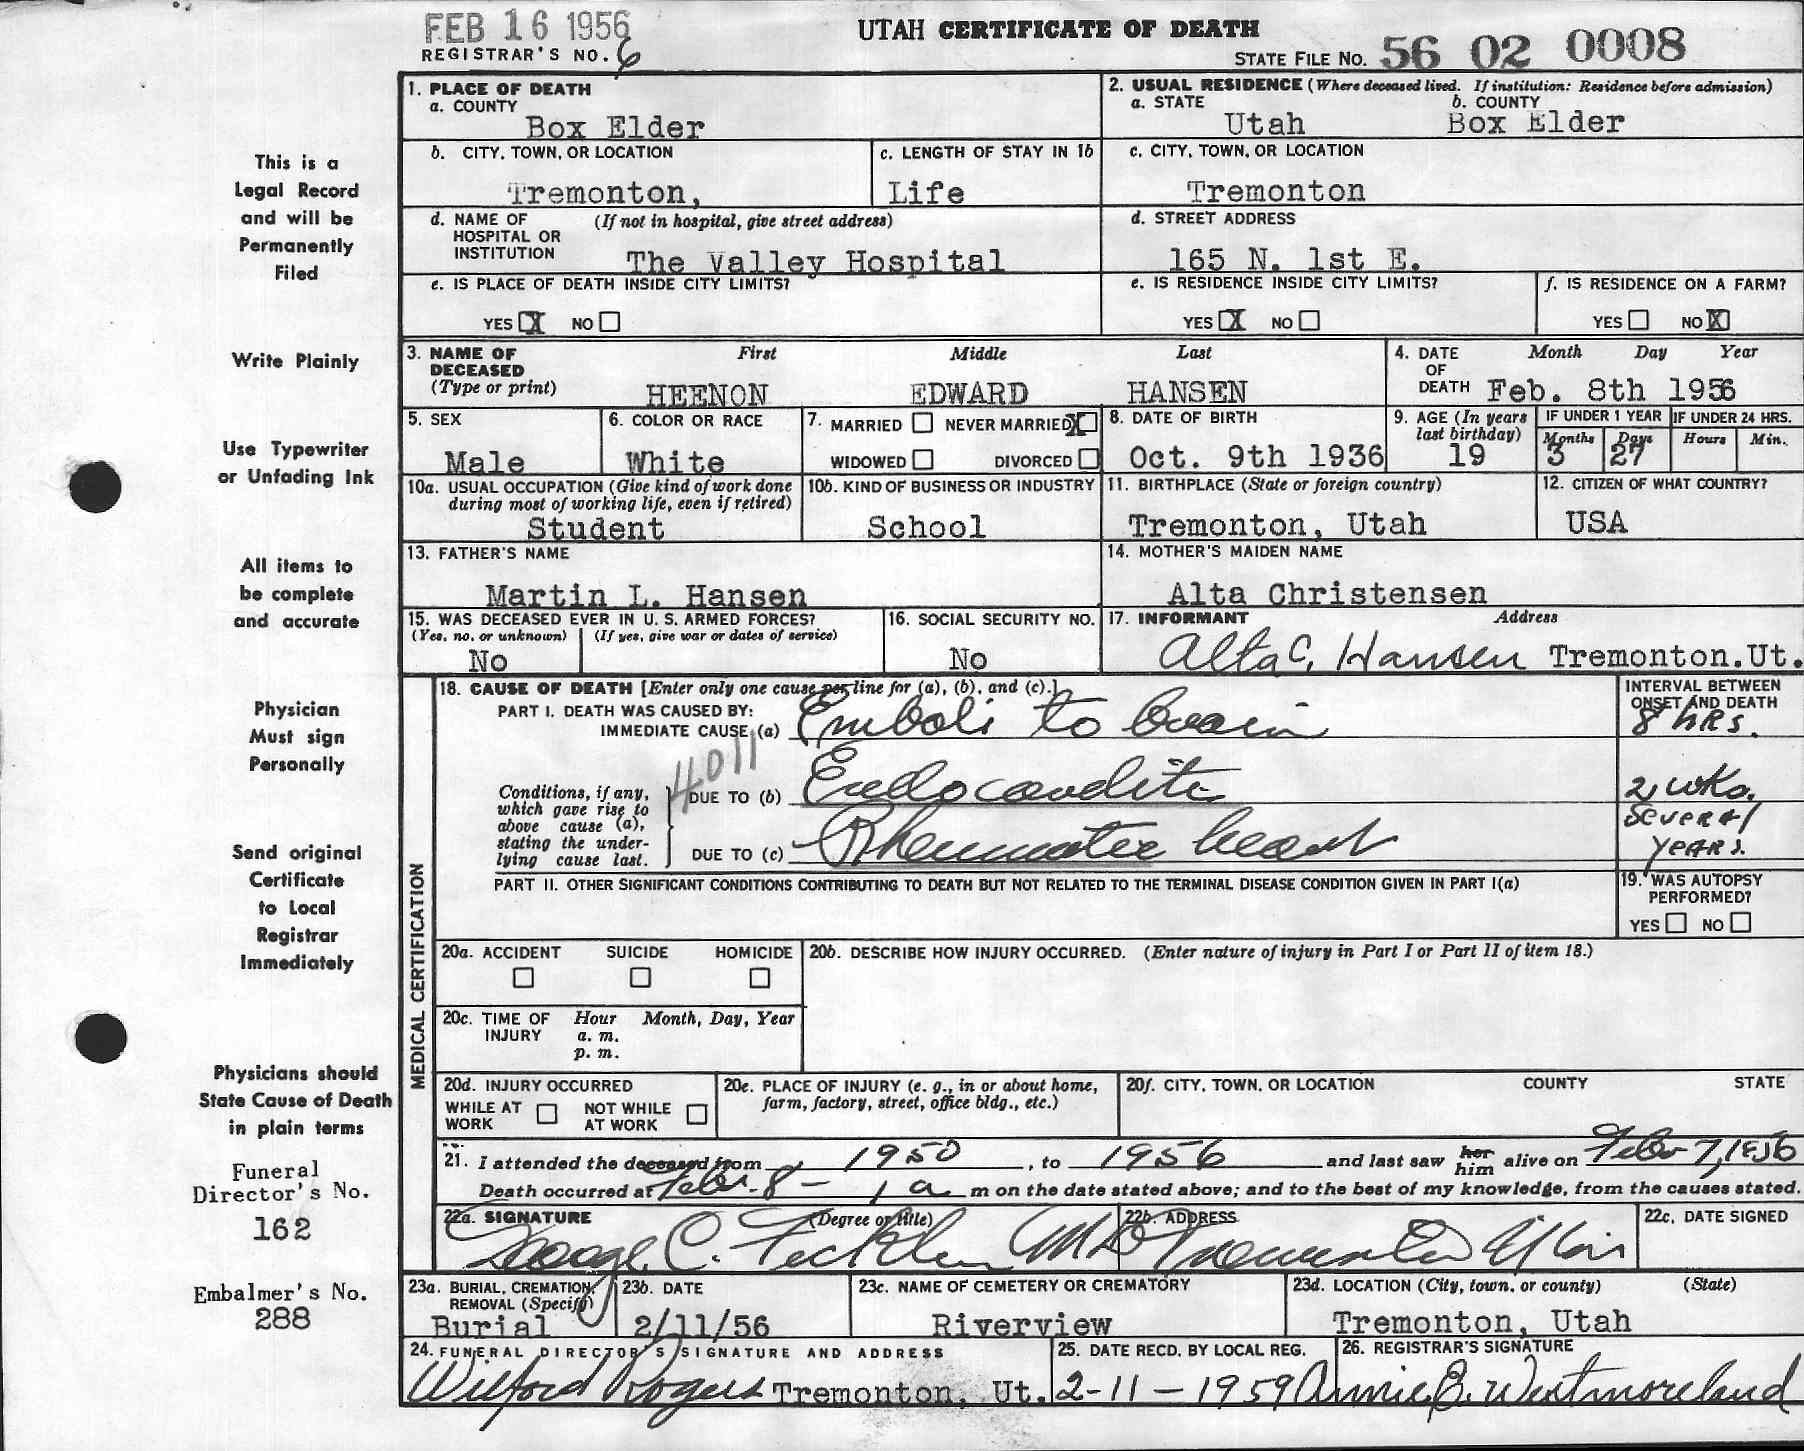 FEB 16 1956
REGISTRAR'S NO. 6
UTAH CERTIFICATE OF DEATH
STATE FILE NO. 56 02 0008
This is a
Legal Record
and will be
Permanently
Filed
Write Plainly
Use Typewriter
or Unfading Ink
All items to
be complete
and accurate
Physician
Must sign
Personally
Send original
Certificate
to Local
Registrar
Immediately
Physicians should
State Cause of Death
in plain terms
Funeral
Director's No.
162
Embalmer's No.
288
1. PLACE OF DEATH
a. COUNTY
Box Elder
2. USUAL RESIDENCE (Where deceased lived. If institution: Residence before admission)
a. STATE b. COUNTY
Utah Box Elder
b. CITY, TOWN, OR LOCATION
Tremonton,
c. LENGTH OF STAY IN 1b
Life
c. CITY, TOWN, OR LOCATION
Tremonton
d. NAME OF (If not in hospital, give street address)
HOSPITAL OR
INSTITUTION
The Valley Hospital
d. STREET ADDRESS
165 N. 1st E.
e. IS PLACE OF DEATH INSIDE CITY LIMITS?
YES X NO
e. IS RESIDENCE INSIDE CITY LIMITS?
YES X NO
f. IS RESIDENCE ON A FARM?
YES NO X
3. NAME OF First Middle Last
DECEASED
(Type or print)
HEENON EDWARD HANSEN
4. DATE Month Day Year
OF
DEATH Feb. 8th 1956
5. SEX
Male
6. COLOR OR RACE
White
7. MARRIED NEVER MARRIED X
WIDOWED DIVORCED
8. DATE OF BIRTH
Oct. 9th 1936
9. AGE (In years
last birthday)
19
IF UNDER 1 YEAR
Months Days
3 27
IF UNDER 24 HRS.
Hours Min.
10a. USUAL OCCUPATION (Give kind of work done
during most of working life, even if retired)
Student
10b. KIND OF BUSINESS OR INDUSTRY
School
11. BIRTHPLACE (State or foreign country)
Tremonton, Utah
12. CITIZEN OF WHAT COUNTRY?
USA
13. FATHER'S NAME
Martin L. Hansen
14. MOTHER'S MAIDEN NAME
Alta Christensen
15. WAS DECEASED EVER IN U. S. ARMED FORCES?
(Yes, no, or unknown) (If yes, give war or dates of service)
No
16. SOCIAL SECURITY NO.
No
17. INFORMANT Address
Alta C. Hansen Tremonton.Ut.
MEDICAL CERTIFICATION
18. CAUSE OF DEATH [Enter only one cause per line for (a), (b), and (c).]
PART I. DEATH WAS CAUSED BY:
IMMEDIATE CAUSE (a) Emboli to brain
INTERVAL BETWEEN
ONSET AND DEATH
8 HRS.
4011
Conditions, if any,
which gave rise to
above cause (a),
stating the under-
lying cause last.
DUE TO (b) Endocarditis
2 wks.
DUE TO (c) Rheumatic heart
several
years.
PART II. OTHER SIGNIFICANT CONDITIONS CONTRIBUTING TO DEATH BUT NOT RELATED TO THE TERMINAL DISEASE CONDITION GIVEN IN PART I(a)
19. WAS AUTOPSY
PERFORMED?
YES NO
20a. ACCIDENT SUICIDE HOMICIDE
20b. DESCRIBE HOW INJURY OCCURRED. (Enter nature of injury in Part I or Part II of item 18.)
20c. TIME OF Hour Month, Day, Year
INJURY a. m.
p. m.
20d. INJURY OCCURRED
WHILE AT NOT WHILE
WORK AT WORK
20e. PLACE OF INJURY (e. g., in or about home,
farm, factory, street, office bldg., etc.)
20f. CITY, TOWN, OR LOCATION COUNTY STATE
21. I attended the deceased from 1950, to 1956 and last saw her him alive on Feb 7, 1956
Death occurred at Feb. 8 - 1 a m on the date stated above; and to the best of my knowledge, from the causes stated.
22a. SIGNATURE (Degree or title)
George C. MD
22b. ADDRESS
Tremonton Utah
22c. DATE SIGNED
23a. BURIAL, CREMATION,
REMOVAL (Specify)
Burial
23b. DATE
2/11/56
23c. NAME OF CEMETERY OR CREMATORY
Riverview
23d. LOCATION (City, town, or county) (State)
Tremonton, Utah
24. FUNERAL DIRECTOR'S SIGNATURE AND ADDRESS
Wilford Rogers Tremonton, Ut.
25. DATE RECD. BY LOCAL REG.
2-11-1959
26. REGISTRAR'S SIGNATURE
Annie B. Westmoreland